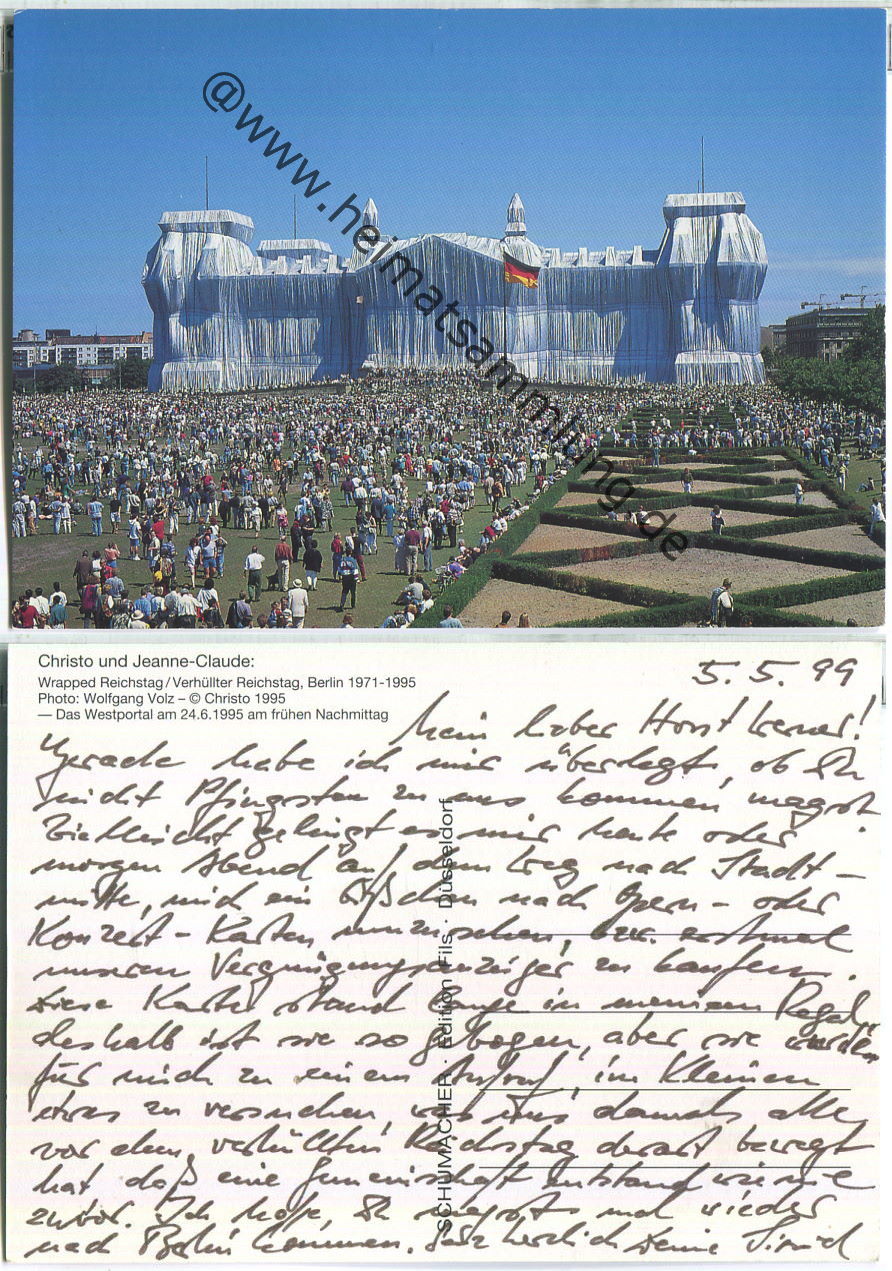 @www.heimatsammlung.de
Christo und Jeanne-Claude:
Wrapped Reichstag / Verhüllter Reichstag, Berlin 1971-1995
Photo: Wolfgang Volz – © Christo 1995
— Das Westportal am 24.6.1995 am frühen Nachmittag
5.5.99
Mein lieber Horst Werner!
Gerade habe ich mir überlegt, ob Du
nicht Pfingsten zu uns kommen magst.
Vielleicht gelingt es mir heute oder
morgen Abend auf dem Weg nach Stadt-
mitte, mich ein bißchen nach Opern- oder
Konzert-Karten umzusehen, bzw. erstmal
unseren Vergnügungsanzeiger zu kaufen.
Diese Karte stand lange in meinem Regal,
deshalb ist sie so gebogen, aber sie wurde
für mich zu einem Aufruf, im Kleinen
etwas zu versuchen, was uns damals alle
vor dem verhüllten Reichstag derart bewegt
hat, daß eine Gemeinschaft entstand wie nie
zuvor. Ich hoffe, Du magst mal wieder
nach Berlin kommen. Ganz herzlich Deine
SCHUMACHER · Edition Fils · Düsseldorf